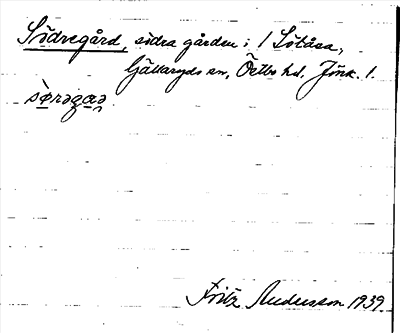 Södregård, södra gården i 1 Sötåsa,
Gällaryds sn, Östbo hd, Jönk. l.
sørəgaə
Fritz Andersson 1939